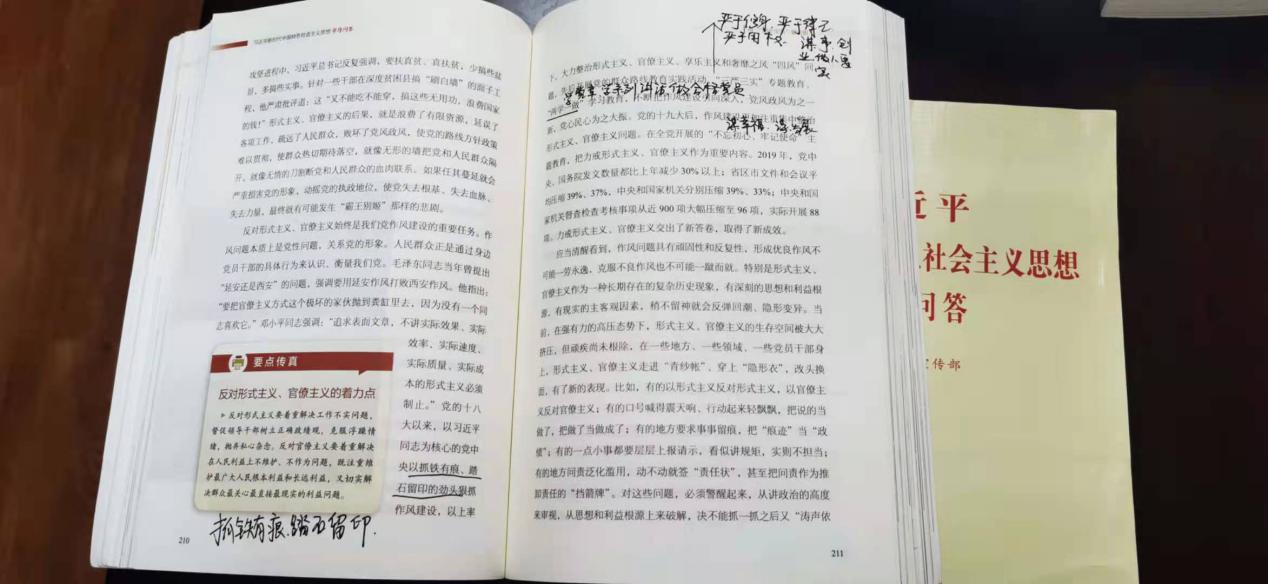 习近平新时代中国特色社会主义思想学习问答
攻坚进程中，习近平总书记反复强调，要扶真贫、真扶贫，少搞些盆
景，多搞些实事。针对一些干部在深度贫困县搞“刷白墙”的面子工
程，他严肃批评道：这“又不能吃不能穿，搞这些无用功，浪费国家
的钱！”形式主义、官僚主义的后果，就是浪费了有限资源，延误了
各项工作，疏远了人民群众，败坏了党风政风，使党的路线方针政策
难以贯彻，使群众热切期待落空，就像无形的墙把党和人民群众隔
开，就像无情的刀割断党和人民群众的血肉联系。如果任其蔓延就会
严重损害党的形象，动摇党的执政地位，使党失去根基、失去血脉、
失去力量，最终就有可能发生“霸王别姬”那样的悲剧。
反对形式主义、官僚主义始终是我们党作风建设的重要任务。作
风问题本质上是党性问题，关系党的形象。人民群众正是通过身边
党员干部的具体行为来认识、衡量我们党。毛泽东同志当年曾提出
“延安还是西安”的问题，强调要用延安作风打败西安作风。他指出：
“要把官僚主义方式这个极坏的家伙抛到粪缸里去，因为没有一个同
志喜欢它。”邓小平同志强调：“追求表面文章，不讲实际效果、实际
效率、实际速度、
实际质量、实际成
本的形式主义必须
制止。”党的十八
大以来，以习近平
同志为核心的党中
央以抓铁有痕、踏
石留印的劲头狠抓
作风建设，以上率
要点传真
反对形式主义、官僚主义的着力点
反对形式主义要着重解决工作不实问题，
督促领导干部树立正确政绩观，克服浮躁情
绪，抛弃私心杂念。反对官僚主义要着重解决
在人民利益上不维护、不作为问题，既注重维
护最广大人民根本利益和长远利益，又切实解
决群众最关心最直接最现实的利益问题。
抓铁有痕、踏石留印.
210
严于修身、严于律己
严于用权、谋事、创
业、做人要
实
下，大力整治形式主义、官僚主义、享乐主义和奢靡之风“四风”问
题，先后开展党的群众路线教育实践活动、“三严三实”专题教育、
“两学一做”学习教育，不断把作风建设引向深入，党风政风为之一
新，党心民心为之大振。党的十九大后，作风建设
形式主义、官僚主义问题。在全党开展的“不忘初心、牢记使命”主
题教育，把力戒形式主义、官僚主义作为重要内容。2019年，党中
央、国务院发文数量都比上年减少30%以上；省区市文件和会议平
均压缩39%、37%，中央和国家机关分别压缩39%、33%；中央和国
家机关督查检查考核事项从近900项大幅压缩至96项，实际开展88
项。力戒形式主义、官僚主义交出了新答卷，取得了新成效。
应当清醒看到，作风问题具有顽固性和反复性，形成优良作风不
可能一劳永逸，克服不良作风也不可能一蹴而就。特别是形式主义、
官僚主义作为一种长期存在的复杂历史现象，有深刻的思想和利益根
源，有现实的主客观因素，稍不留神就会反弹回潮、隐形变异。当
前，在强有力的高压态势下，形式主义、官僚主义的生存空间被大大
挤压，但顽疾尚未根除，在一些地方、一些领域、一些党员干部身
上，形式主义、官僚主义走进“青纱帐”、穿上“隐形衣”，改头换
面，有了新的表现。比如，有的以形式主义反对形式主义，以官僚主
义反对官僚主义；有的口号喊得震天响、行动起来轻飘飘，把说的当
做了，把做了当做成了；有的地方要求事事留痕，把“痕迹”当“政
绩”；有的一点小事都要层层上报请示，看似讲规矩，实则不担当；
有的地方问责泛化滥用，动不动就签“责任状”，甚至把问责作为推
卸责任的“挡箭牌”。对这些问题，必须警醒起来，从讲政治的高度
来审视，从思想和利益根源上来破解，决不能抓一抓之后又“涛声依
211
近平
社会主义思想
问答
传部